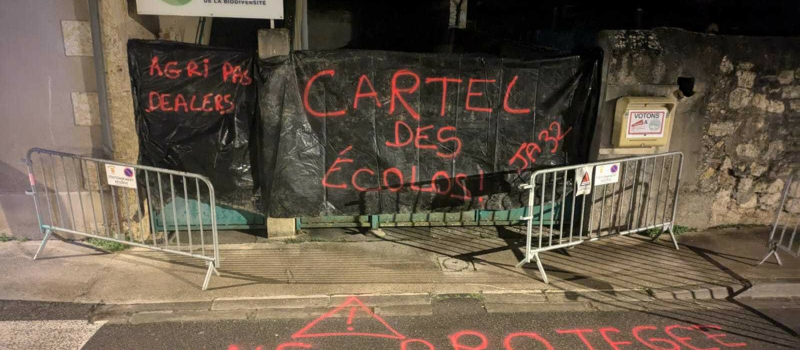 DE LA BIODIVERSITÉ
AGRI PAS
DEALERS
CARTEL
DES
ÉCOLOS!
JA 32
VOTONS
!
PROTEGEE